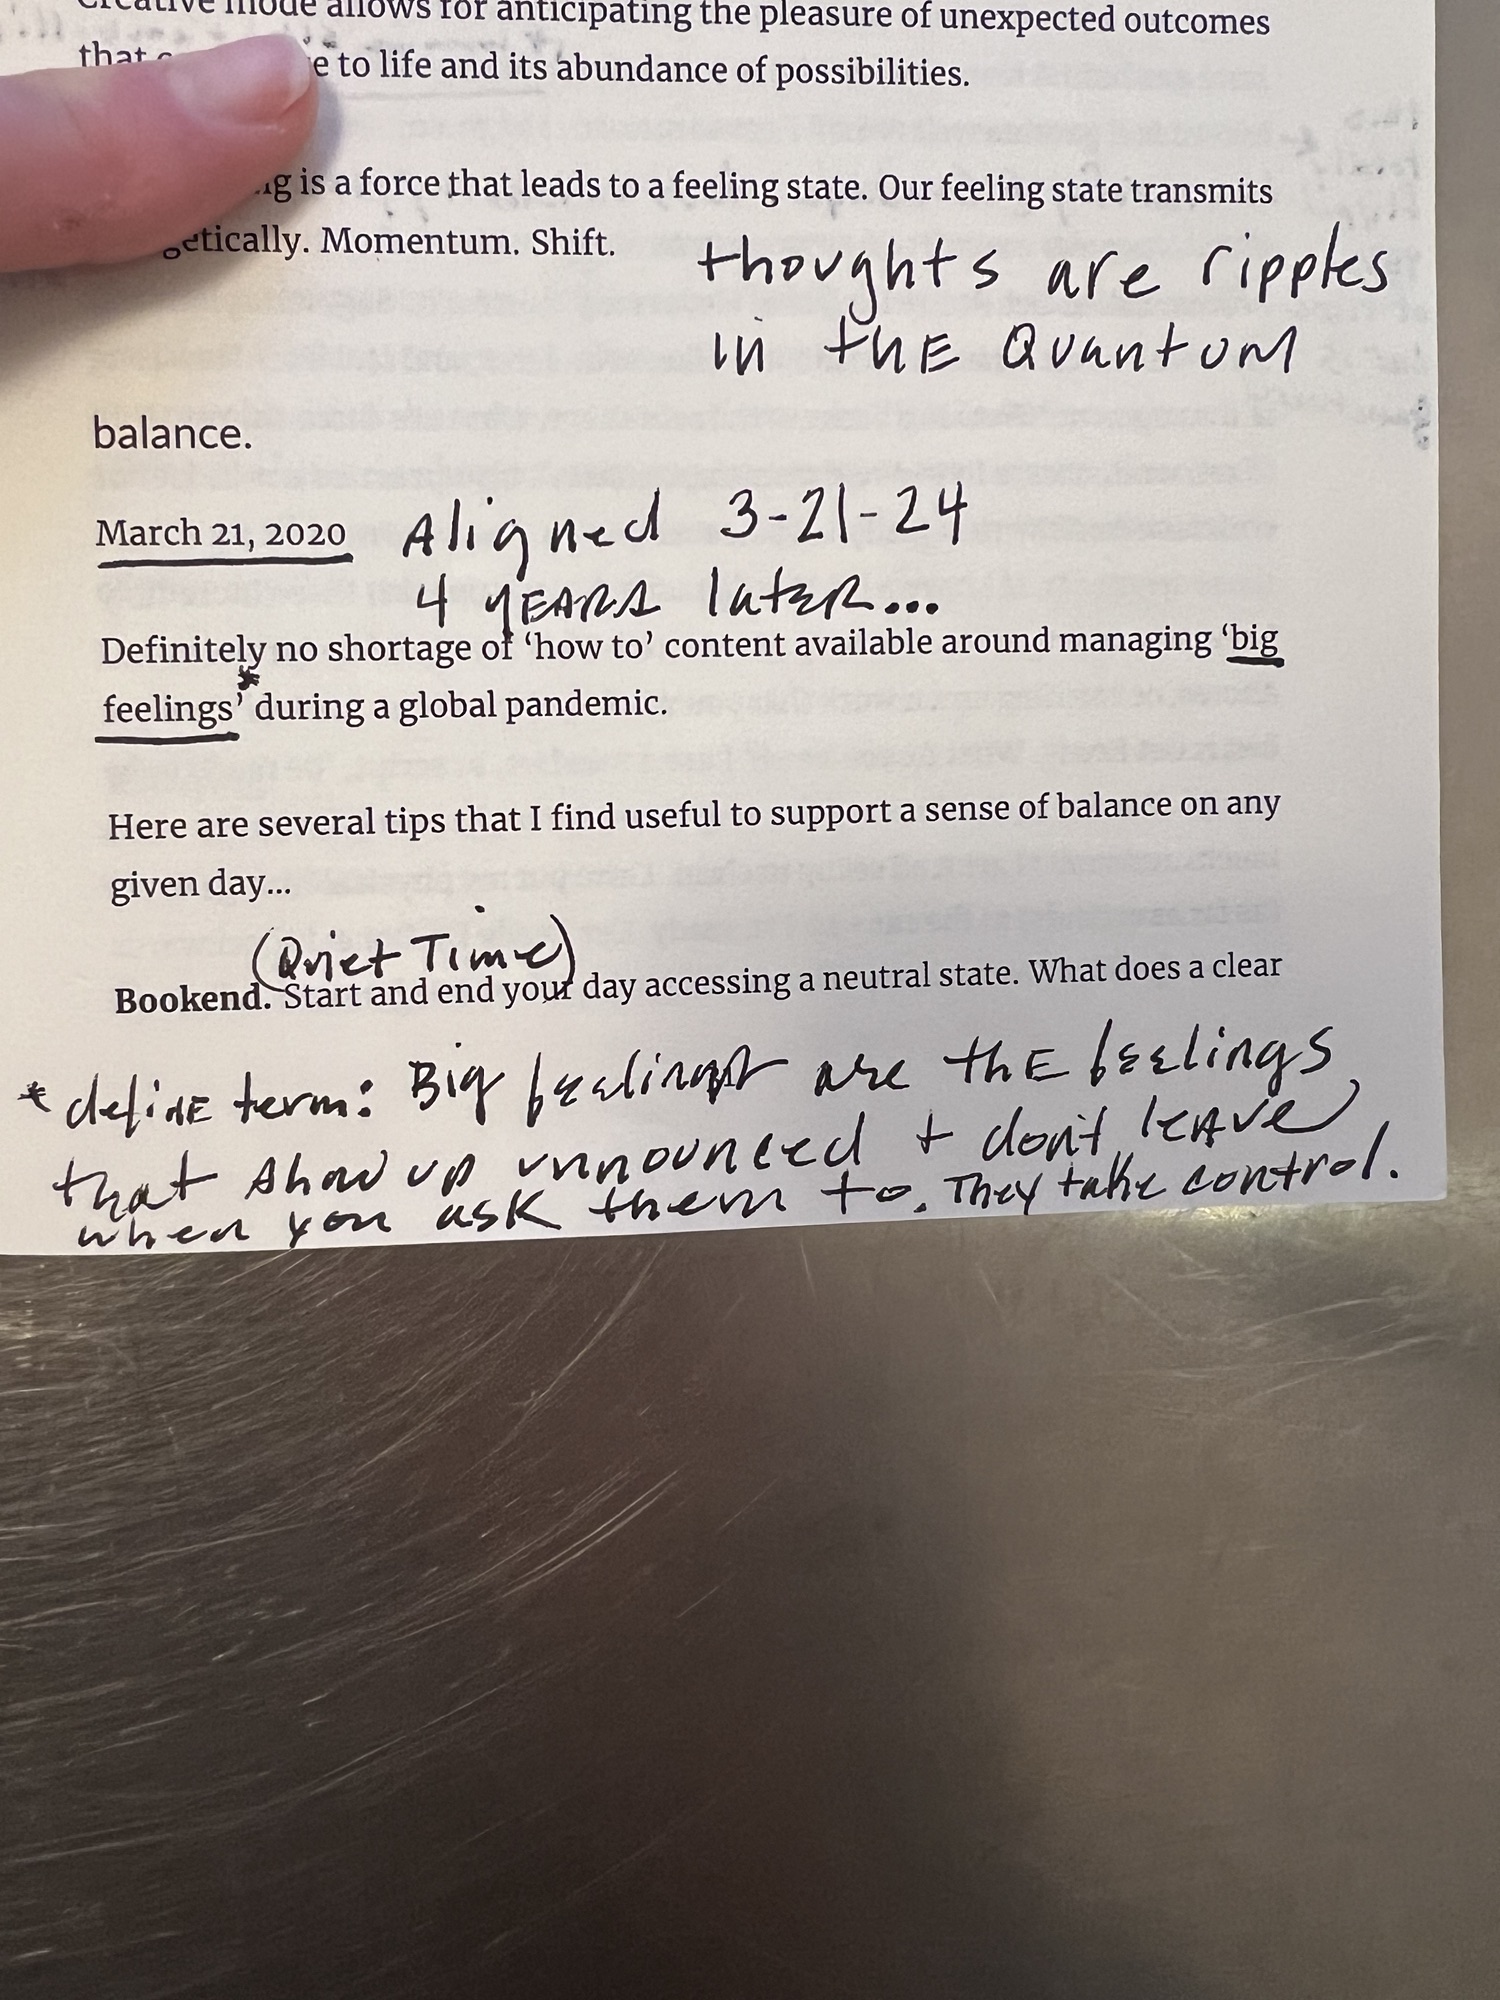 Creative mode allows for anticipating the pleasure of unexpected outcomes
that to life and its abundance of possibilities.
is a force that leads to a feeling state. Our feeling state transmits
Momentum. Shift.
thoughts are ripples
in thE Quantum
balance.
March 21, 2020 Aligned 3-21-24
4 YEARS latER...
Definitely no shortage of ‘how to’ content available around managing ‘big
feelings’* during a global pandemic.
Here are several tips that I find useful to support a sense of balance on any
given day...
(Quiet Time)
Bookend. Start and end your day accessing a neutral state. What does a clear
* definE term: Big feelings are thE feelings
that show up unnounced + don't leave
when you ask them to. They take control.